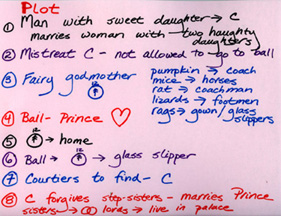 Plot
① Man with sweet daughter → C
marries woman with two haughty daughters
② Mistreat C - not allowed to go to ball
③ Fairy godmother
12
pumpkin → coach
mice → horses
rat → coachman
lizards → footmen
rags → gown/glass slippers
④ Ball - Prince ♡
⑤ 12 → home
⑥ Ball → 12 → glass slipper
⑦ Courtiers to find - C
⑧ C forgives step-sisters - marries Prince
sisters → lords → live in palace